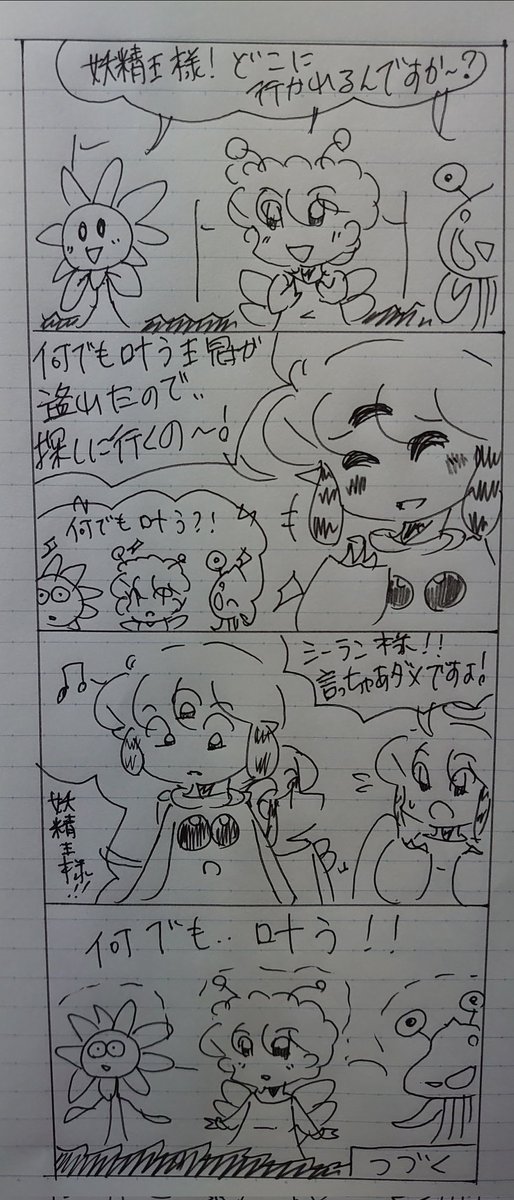 妖精王様!どこに
行かれるんですか~?
何でも叶う王冠が
盗れたので..
探しに行くの~!
何でも叶う?!
ミーラン様!!
言っちゃあダメですよ!
妖精王様!!!
何でも..叶う!!
つづく